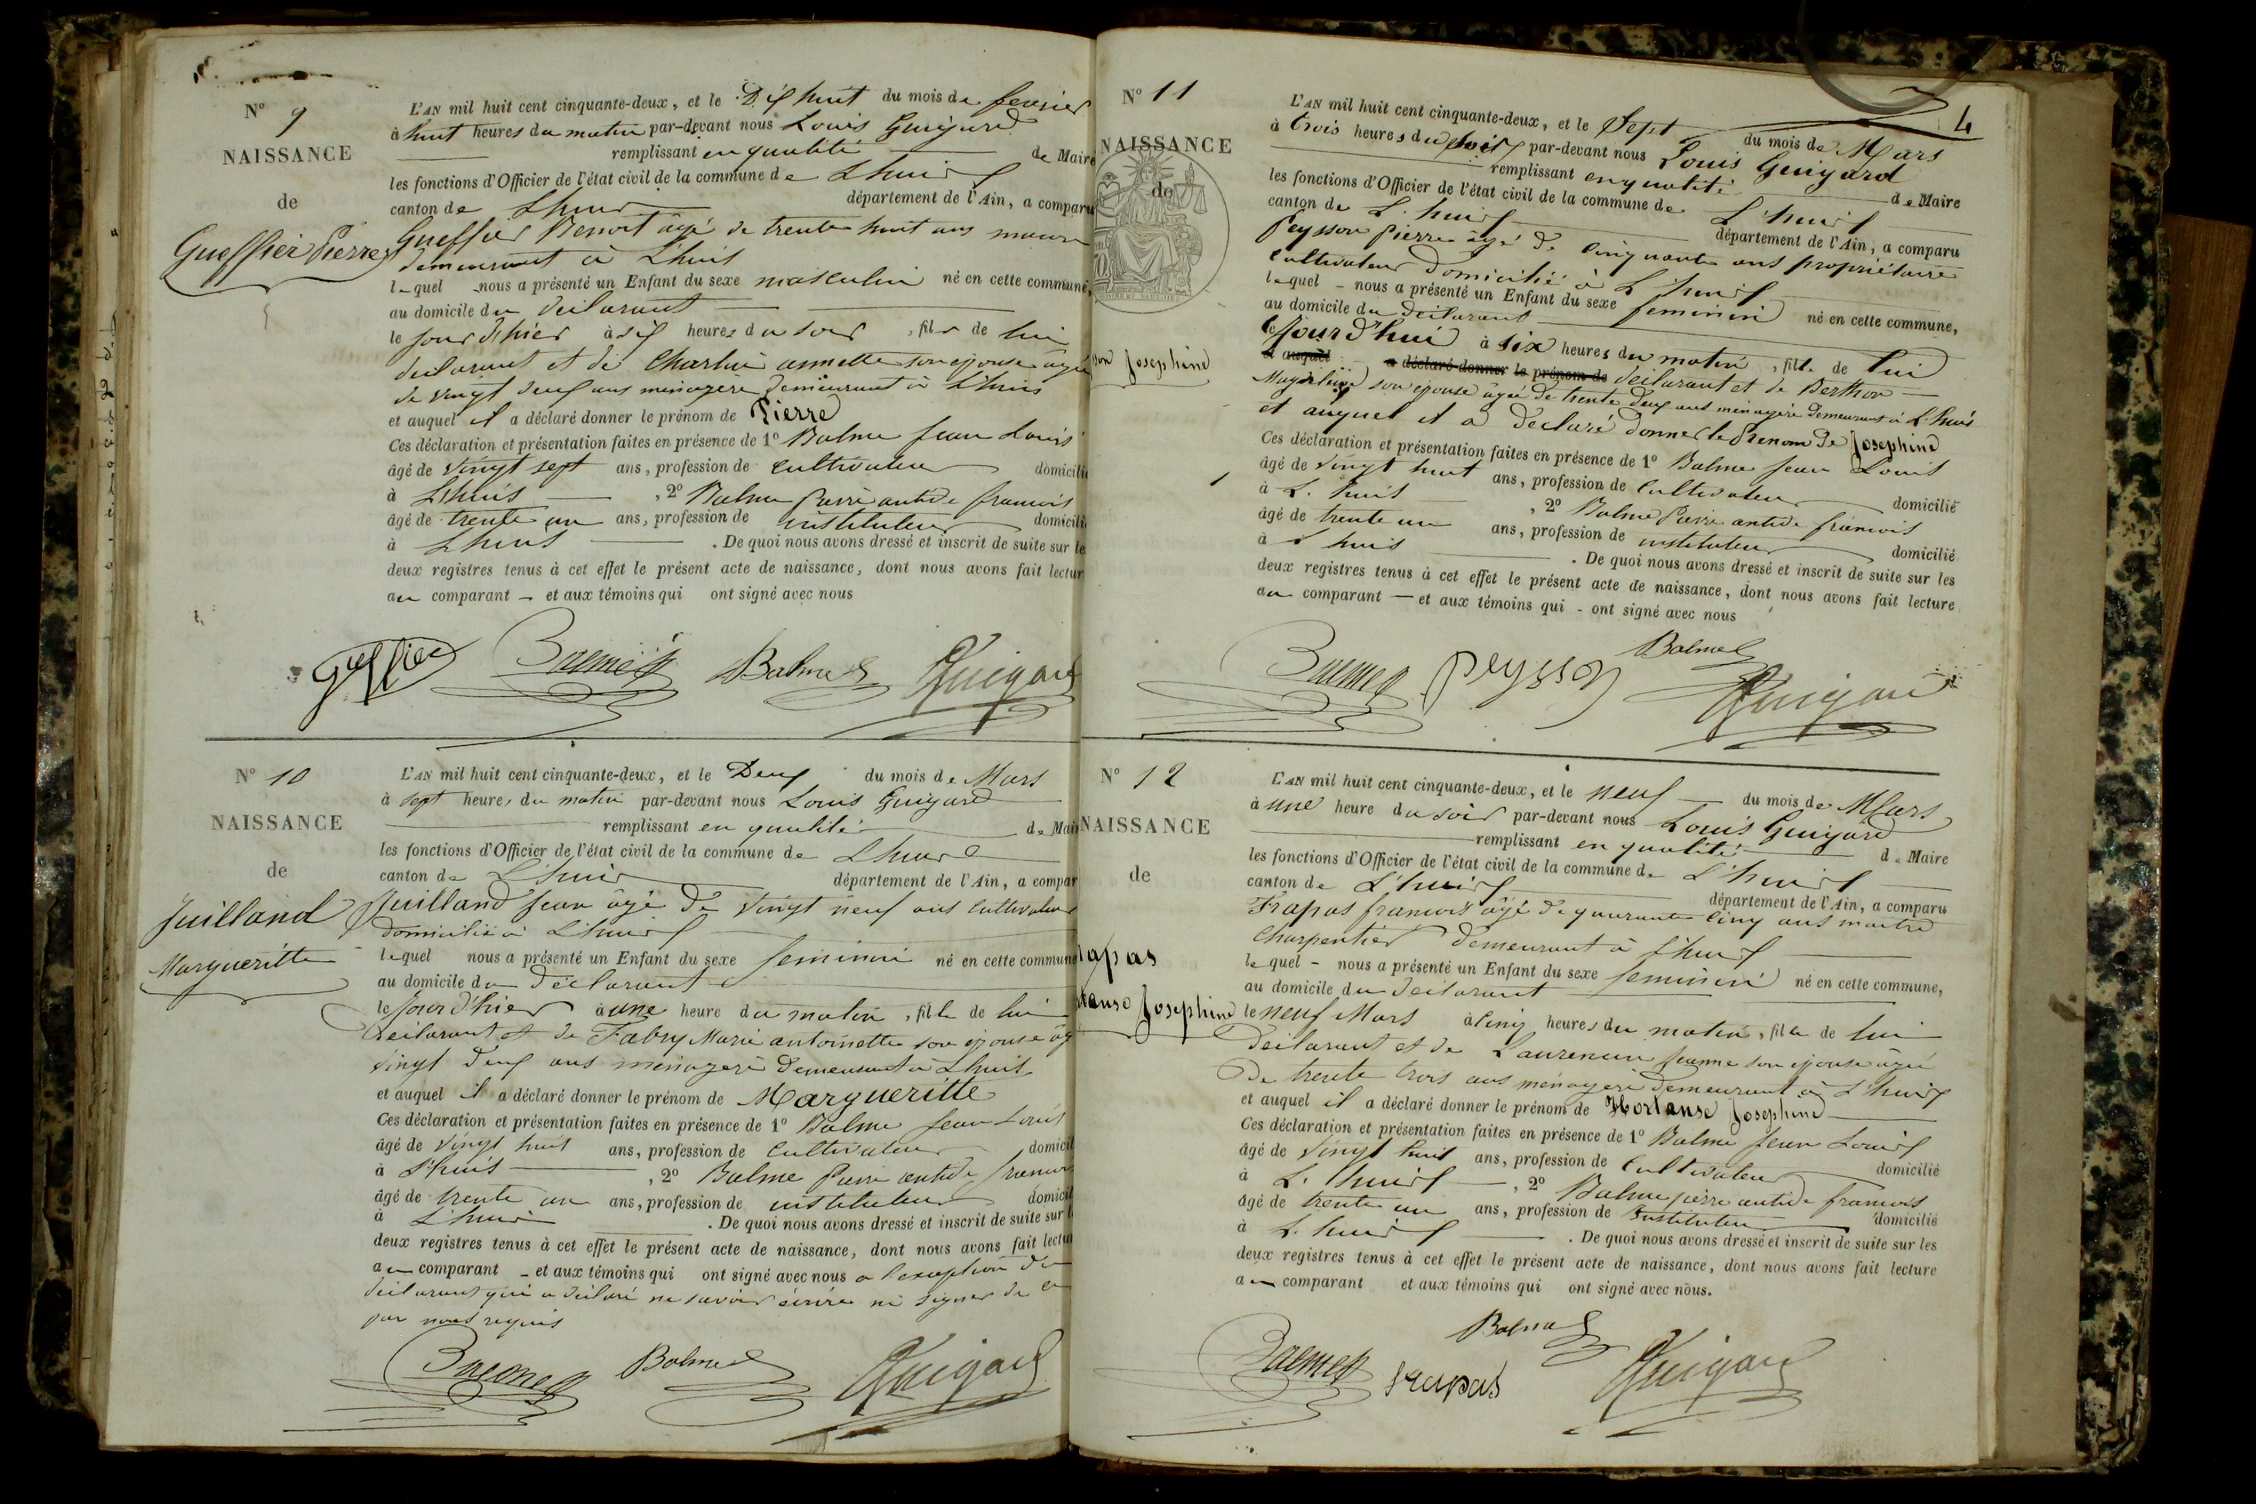 N° 9
NAISSANCE
de
Gueffier Pierre
L'AN mil huit cent cinquante-deux, et le Dix huit du mois de fevrier
à huit heures du matin par-devant nous Louis Guigard
remplissant en qualité de Maire
les fonctions d'Officier de l'état civil de la commune de Lhuis
canton de Lhuis département de l'Ain, a comparu
Gueffier Benoit âgé de trente huit ans
demeurant à Lhuis
lequel nous a présenté un Enfant du sexe masculin né en cette commune,
au domicile du déclarant
le jour d'hier à six heures du soir, fils de lui
déclarant et de Charlin annette son épouse âgée
de vingt deux ans ménagère demeurant à Lhuis
et auquel il a déclaré donner le prénom de Pierre
Ces déclaration et présentation faites en présence de 1° Balme Jean Louis
âgé de vingt sept ans, profession de cultivateur domicilié
à Lhuis, 2° Balme Pierre antide francois
âgé de trente un ans, profession de instituteur domicilié
à Lhuis. De quoi nous avons dressé et inscrit de suite sur les
deux registres tenus à cet effet le présent acte de naissance, dont nous avons fait lecture
au comparant et aux témoins qui ont signé avec nous
Gueffier Balme Guigard
N° 10
NAISSANCE
de
Juilland
Margueritte
L'AN mil huit cent cinquante-deux, et le Deux du mois de Mars
à sept heures du matin par-devant nous Louis Guigard
remplissant en qualité de Maire
les fonctions d'Officier de l'état civil de la commune de Lhuis
canton de Lhuis département de l'Ain, a compar
Juilland Jean âgé de vingt neuf ans cultivateur
domicilié à L'huis
lequel nous a présenté un Enfant du sexe feminin né en cette commune
au domicile du déclarant
le jour d'hier à une heure du matin, fille de lui
déclarant et de Fabry Marie antoinette son épouse âg
vingt deux ans ménagère demeurant à Lhuis
et auquel il a déclaré donner le prénom de Margueritte
Ces déclaration et présentation faites en présence de 1° Balme Jean Louis
âgé de vingt huit ans, profession de cultivateur domicil
à L'huis, 2° Balme Pierre antide francois
âgé de trente un ans, profession de instituteur domicil
à L'huis. De quoi nous avons dressé et inscrit de suite sur l
deux registres tenus à cet effet le présent acte de naissance, dont nous avons fait lectur
au comparant et aux témoins qui ont signé avec nous a l'exception du
déclarant qui a déclaré ne savoir écrire ni signer de ce
par nous requis
Balme Guigard
4
N° 11
NAISSANCE
de
son Josephine
L'AN mil huit cent cinquante-deux, et le Sept du mois de Mars
à trois heures du soir par-devant nous Louis Guigard
remplissant en qualité de Maire
les fonctions d'Officier de l'état civil de la commune de L'huis
canton de L'huis département de l'Ain, a comparu
Peysson Pierre âgé de cinquante ans propriétaire
cultivateur domicilié à L'huis
lequel nous a présenté un Enfant du sexe feminin né en cette commune,
au domicile du déclarant
le jour d'hui à six heures du matin, fille de lui
et auquel a déclaré donner le prénom de déclarant et de Berthon
son épouse âgée de trente deux ans ménagère demeurant à L'huis
et auquel il a déclaré donner le Prénom de Josephine
Ces déclaration et présentation faites en présence de 1° Balme Jean Louis
âgé de vingt huit ans, profession de cultivateur domicilié
à L'huis, 2° Balme Pierre antide francois
âgé de trente un ans, profession de instituteur domicilié
à L'huis. De quoi nous avons dressé et inscrit de suite sur les
deux registres tenus à cet effet le présent acte de naissance, dont nous avons fait lecture
au comparant et aux témoins qui ont signé avec nous
Balme
peysson Guigard
N° 12
NAISSANCE
de
rapas
tanse Josephine
L'AN mil huit cent cinquante-deux, et le neuf du mois de Mars
à une heure du soir par-devant nous Louis Guigard
remplissant en qualité de Maire
les fonctions d'Officier de l'état civil de la commune de L'huis
canton de L'huis département de l'Ain, a comparu
Frapas francois âgé de quarante cinq ans maitre
charpentier demeurant à L'huis
lequel nous a présenté un Enfant du sexe feminin né en cette commune,
au domicile du déclarant
le neuf Mars à cinq heures du matin, fille de lui
déclarant et de Jeanne son épouse âgée
de trente trois ans ménagère demeurant à L'huis
et auquel il a déclaré donner le prénom de Hortanse Josephine
Ces déclaration et présentation faites en présence de 1° Balme Jean Louis
âgé de vingt huit ans, profession de cultivateur domicilié
à L'huis, 2° Balme pierre antide francois
âgé de trente un ans, profession de instituteur domicilié
à L'huis. De quoi nous avons dressé et inscrit de suite sur les
deux registres tenus à cet effet le présent acte de naissance, dont nous avons fait lecture
au comparant et aux témoins qui ont signé avec nous.
Balme
frapas Guigard